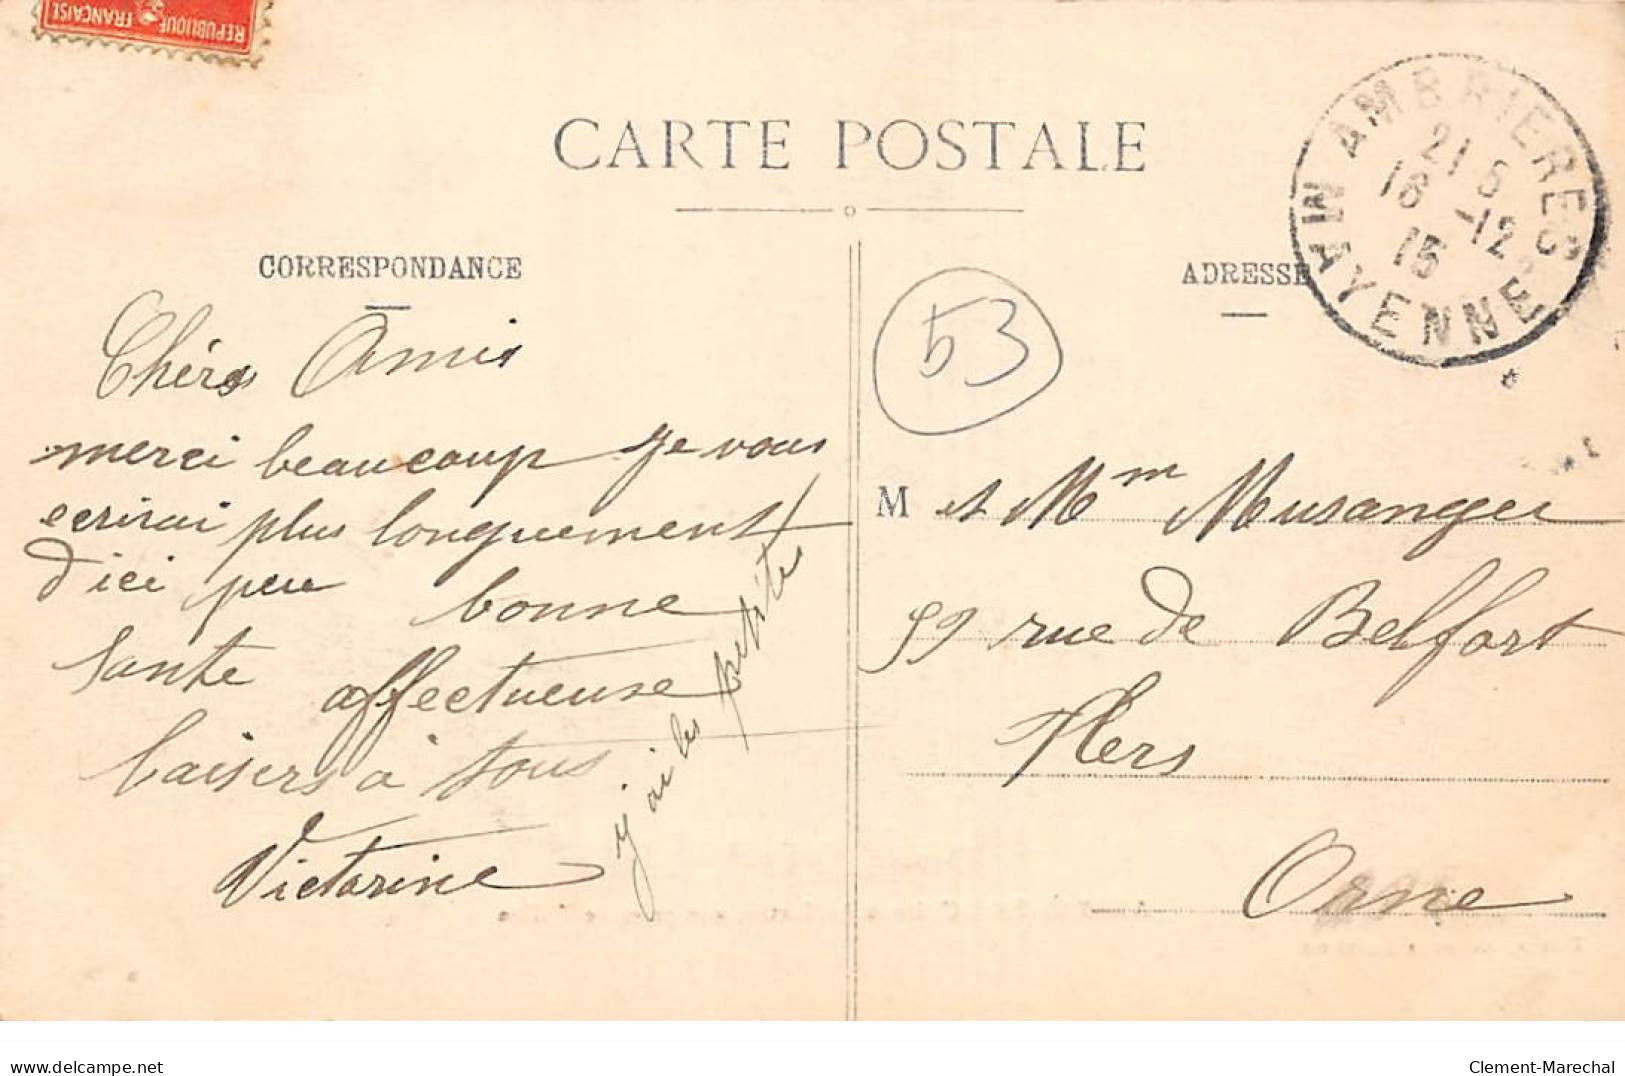 REPUBLIQUE FRANÇAISE
CARTE POSTALE
AMBRIERES
21 5
16 -12
15
MAYENNE
CORRESPONDANCE
ADRESSE
53
Chérs Amis
merci beaucoup je vous
ecrirai plus longuement
d'ici peu bonne
sante affectueuse
baisers à tous
Victorine
j'ai les
M et Mme Musanger
59 rue de Belfort
Flers
Orne
www.delcampe.net
Clement-Marechal